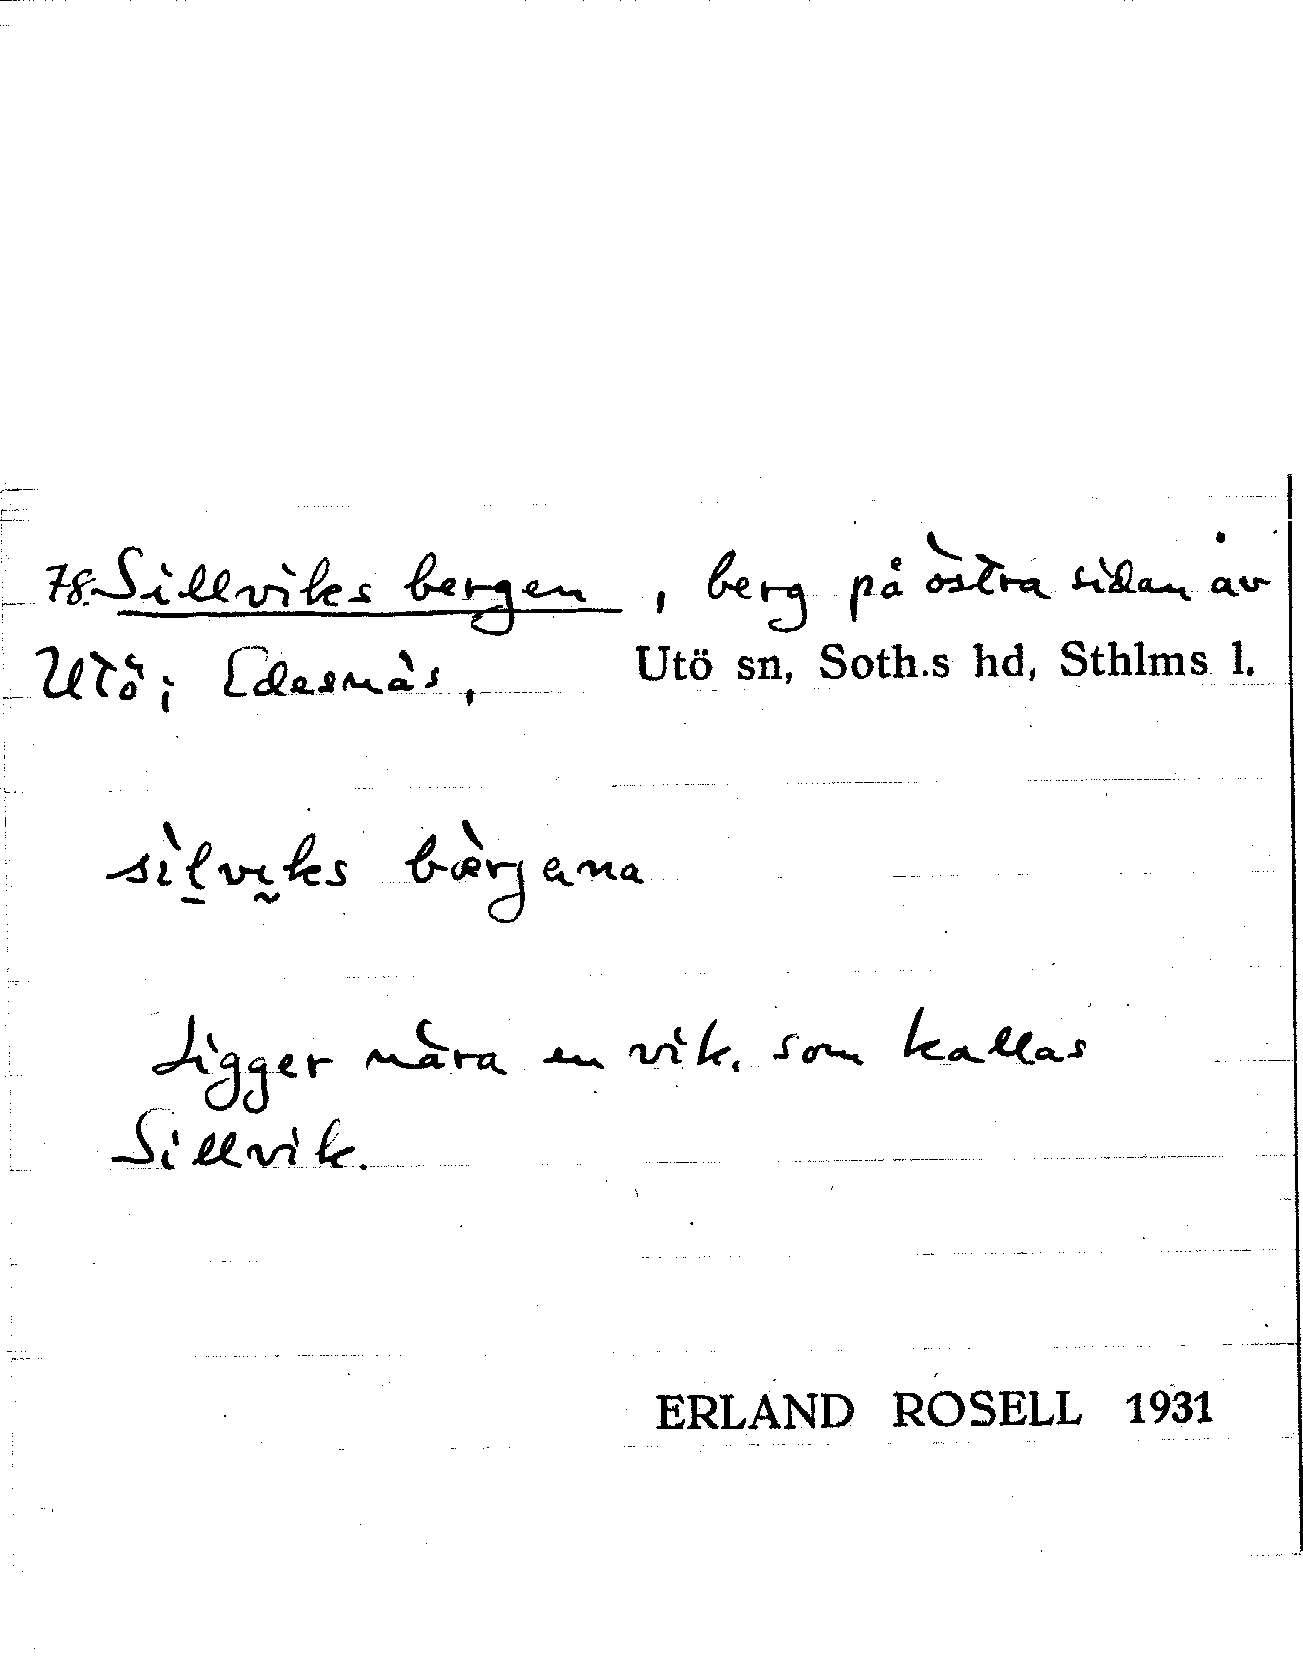 78. Sillviks bergen, berg på östra sidan av
Utö; Edesnäs, Utö sn, Soth.s hd, Sthlms l.
sìl̠vḭks bæ̀rjana
Ligger nära en vik, som kallas
Sillvik.
ERLAND ROSELL 1931